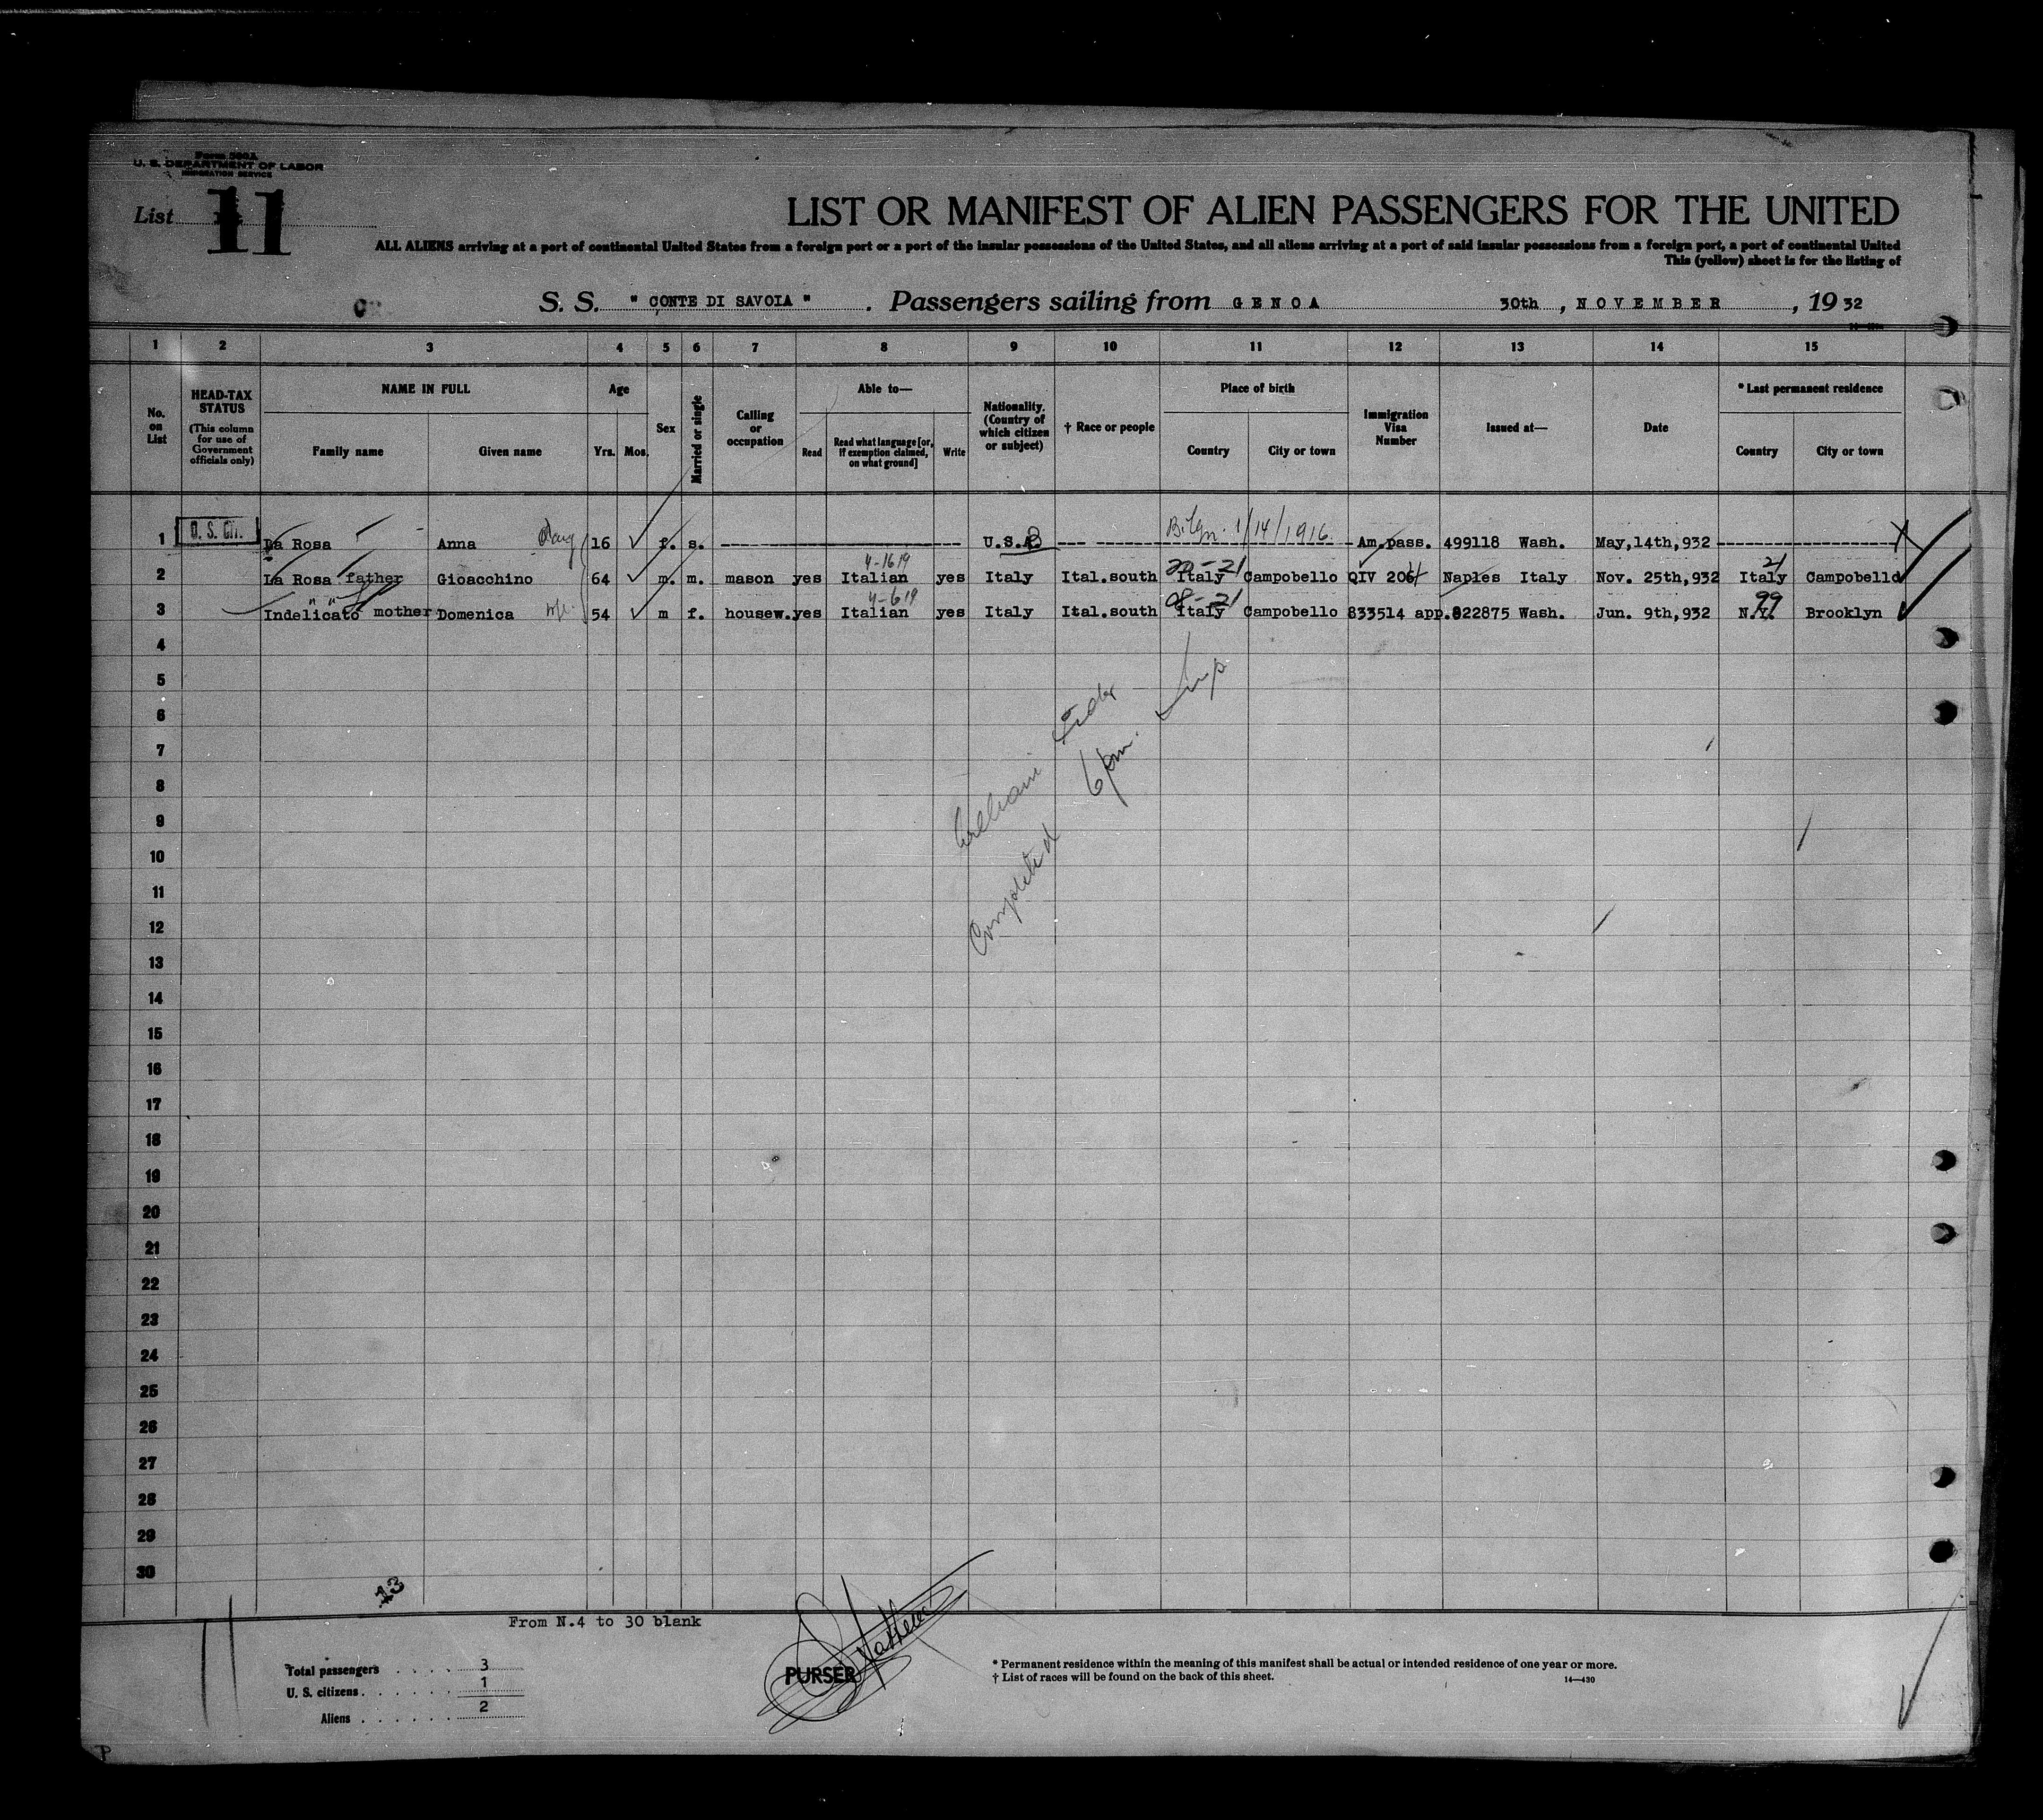 Form 500A
U. S. DEPARTMENT OF LABOR
IMMIGRATION SERVICE
List 11
LIST OR MANIFEST OF ALIEN PASSENGERS FOR THE UNITED
ALL ALIENS arriving at a port of continental United States from a foreign port or a port of the insular possessions of the United States, and all aliens arriving at a port of said insular possessions from a foreign port, a port of continental United
This (yellow) sheet is for the listing of
S. S. " CONTE DI SAVOIA " . Passengers sailing from GENOA 30th , NOVEMBER , 19 32
1 2 3 4 5 6 7 8 9 10 11 12 13 14 15
No. on List
HEAD-TAX STATUS (This column for use of Government officials only)
NAME IN FULL
Family name Given name
Age
Yrs. Mos.
Sex
Married or single
Calling or occupation
Able to—
Read Read what language [or, if exemption claimed, on what ground] Write
Nationality. (Country of which citizen or subject)
† Race or people
Place of birth
Country City or town
Immigration Visa Number
Issued at—
Date
* Last permanent residence
Country City or town
1 U. S. Cit. La Rosa Anna Daug 16 f. s. U.S.A. 1/14/1916 Am.pass. 499118 Wash. May,14th,932
4-1619
2 La Rosa father Gioacchino 64 m. m. mason yes Italian yes Italy Ital.south Italy Campobello QIV 206 Naples Italy Nov. 25th,932 Italy Campobello
4-619
3 Indelicato mother Domenica 54 m f. housew. yes Italian yes Italy Ital.south Italy Campobello 833514 app.822875 Wash. Jun. 9th,932 N.Y. Brooklyn
99
4
5
6
7
8
9
10
11
12
13
14
15
16
17
18
19
20
21
22
23
24
25
26
27
28
29
30
Completed 6 pm.
13
From N.4 to 30 blank
Total passengers 3
U. S. citizens 1
Aliens 2
PURSER
* Permanent residence within the meaning of this manifest shall be actual or intended residence of one year or more.
† List of races will be found on the back of this sheet.
14—430
P